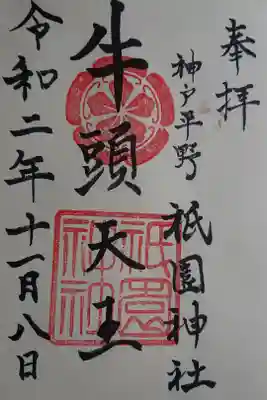 奉拝
神戸平野
祇園神社
牛頭天王
祇園神社
令和二年十一月八日